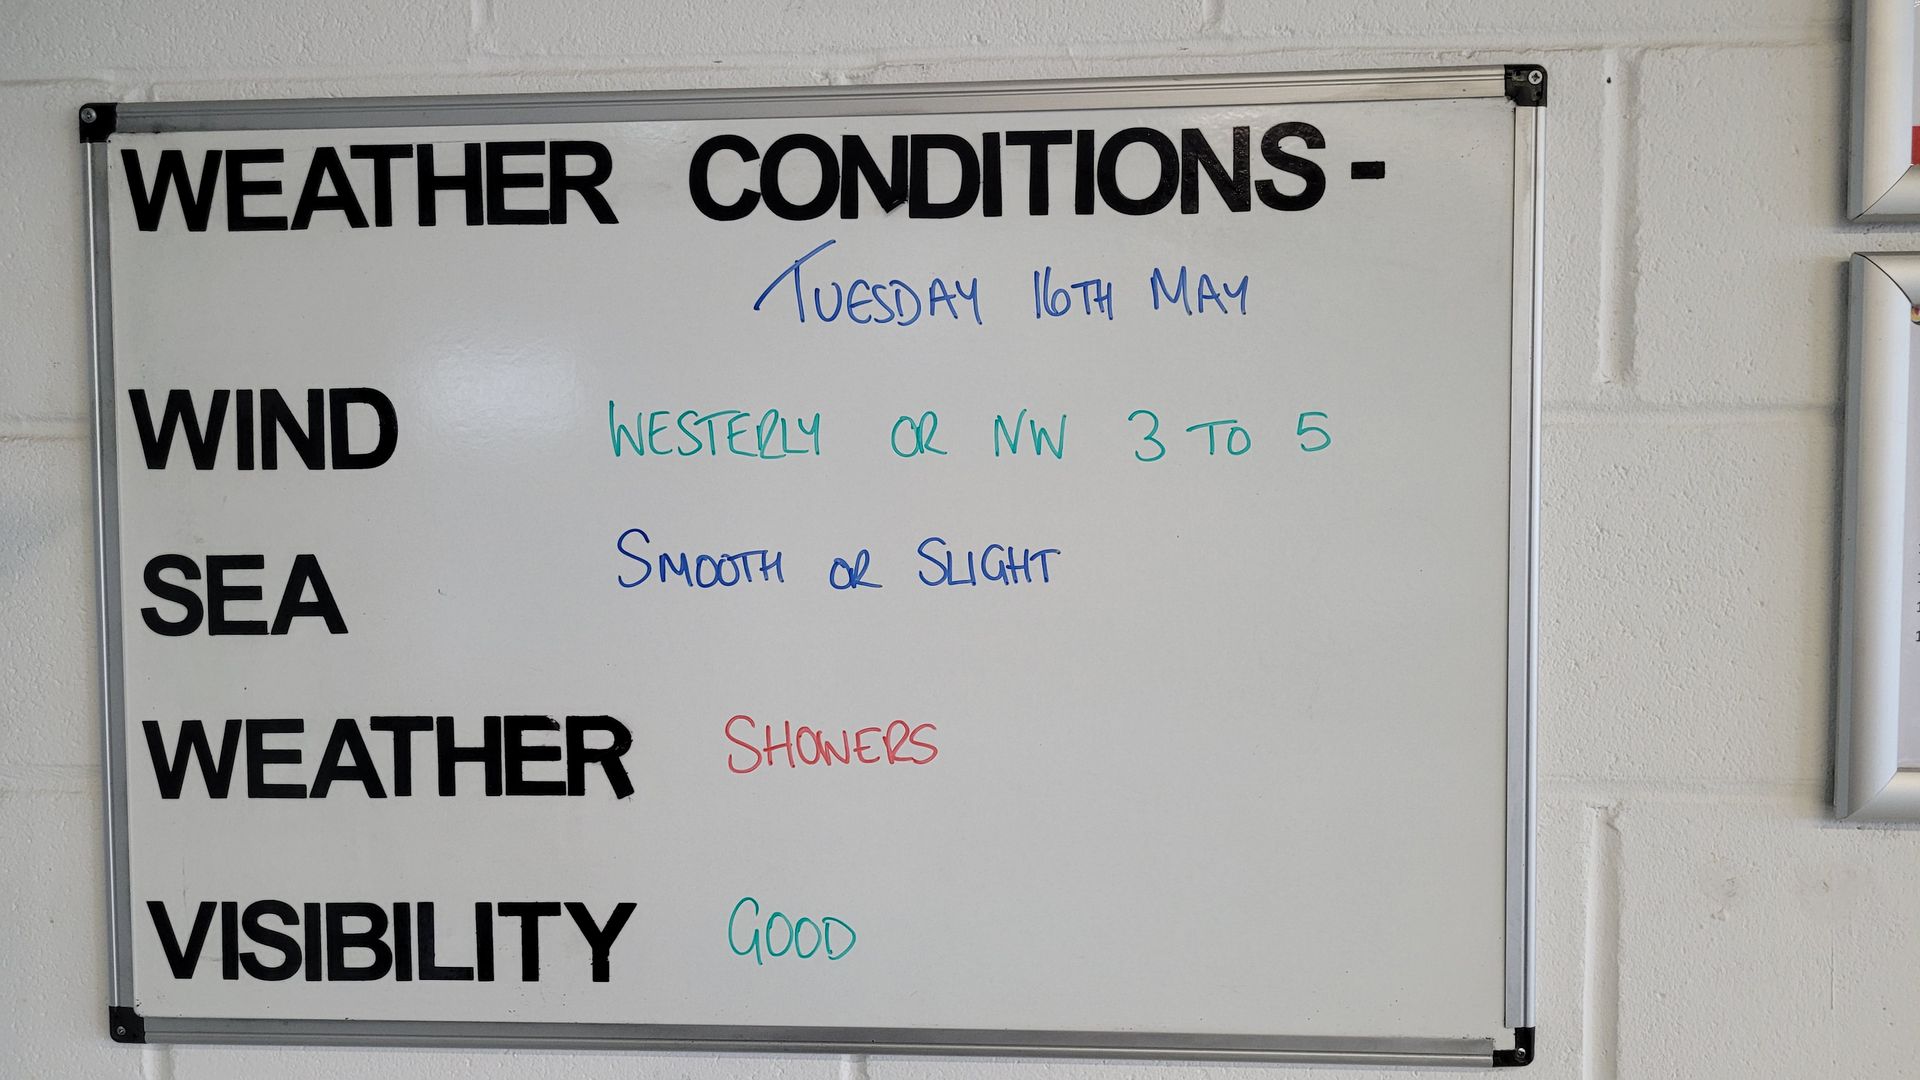 WEATHER CONDITIONS -
TUESDAY 16TH MAY
WIND WESTERLY OR NW 3 TO 5
SEA SMOOTH OR SLIGHT
WEATHER SHOWERS
VISIBILITY GOOD